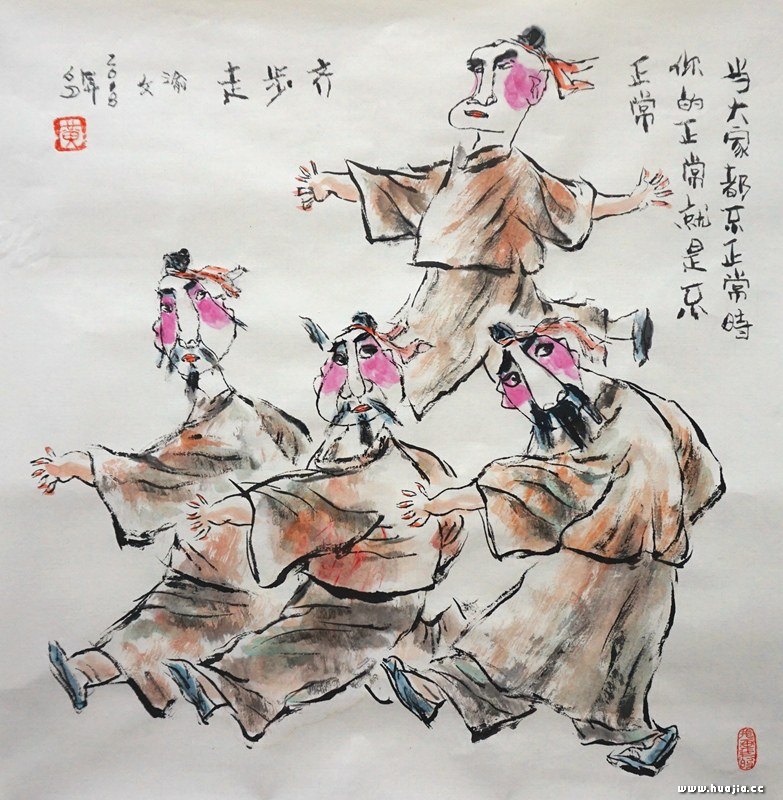 当大家都不正常時
你的正常就是不
正常
齐步走
渝
文
2008
黄
www.huajia.cc